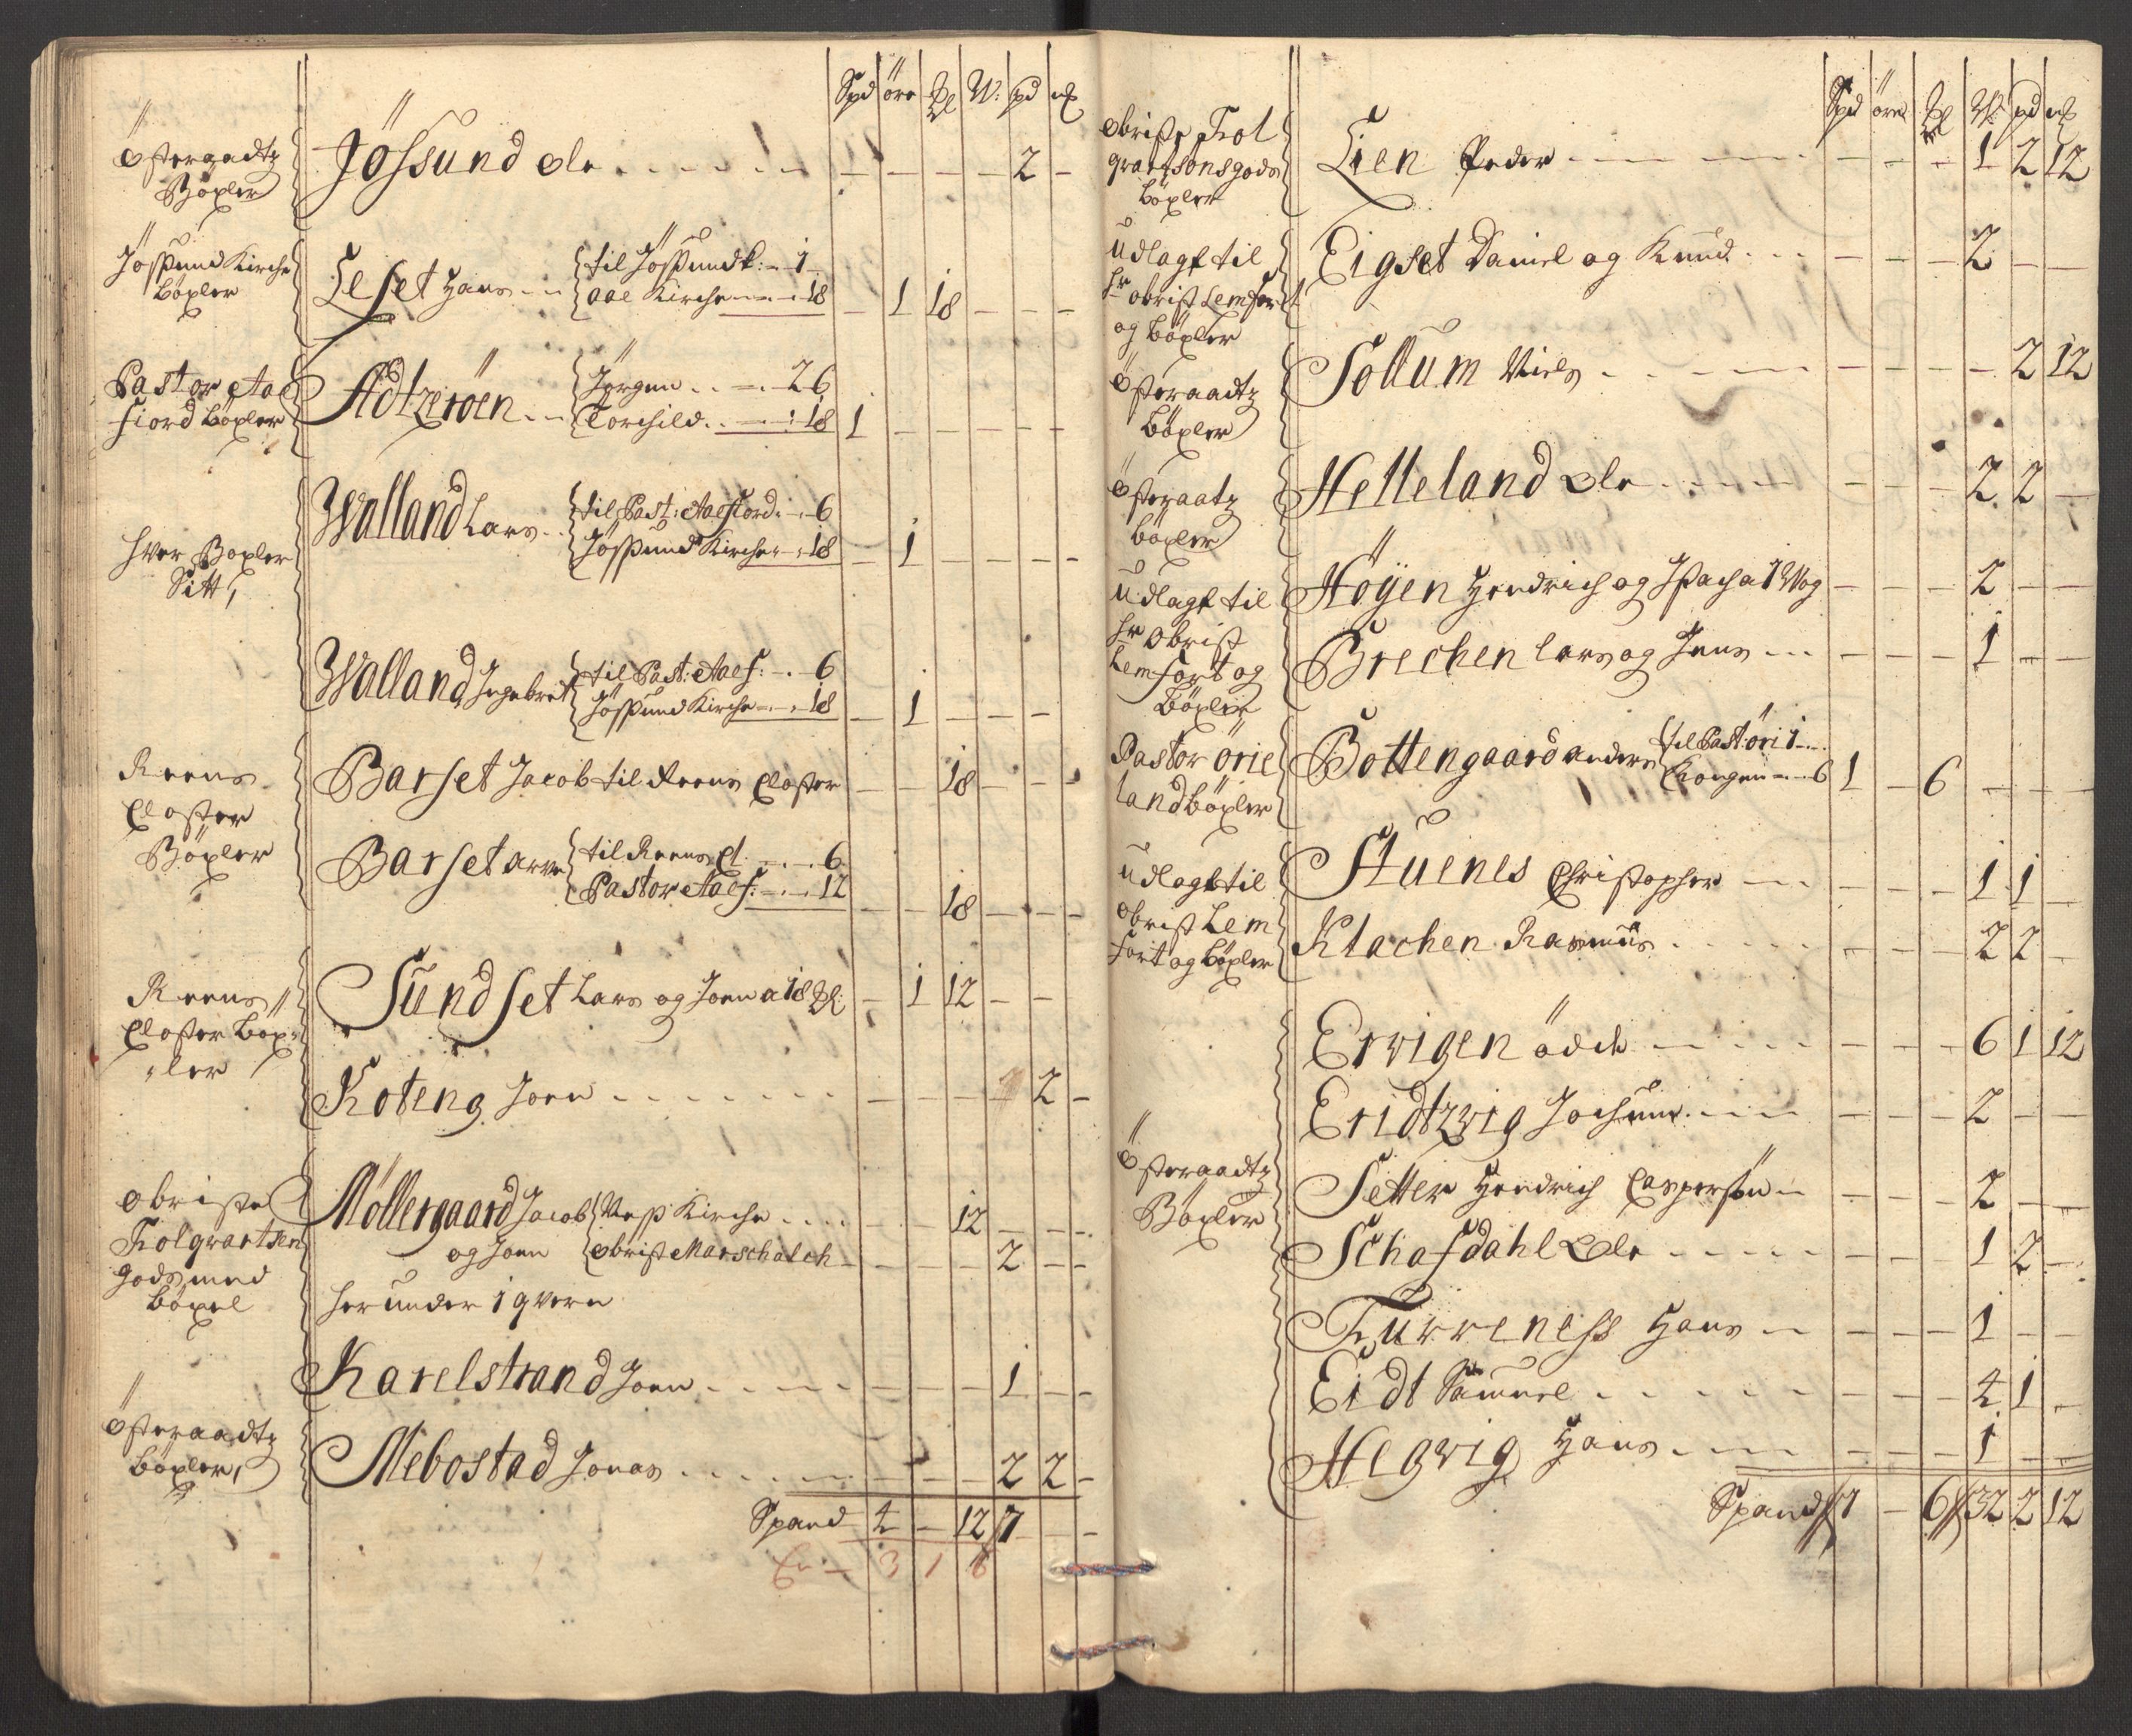 Spd öre Ml W: pd mk
Österaadtz
Böxler
Jössund Ole - - - - 2 -
Jössund Kirche
böxler
Leset Hans
til Jössund k: - 1
Aae Kirche - 18 - 1 18 - - -
Pastor Aae
fiord böxler
Adtzeröen
Jörgen - 2 6
Torchild - 18 1 - - - - -
hver Boxler
Sitt,
Walland Lars
til Past: Aaefiord - 6
Jössund Kirche - 18 - 1 - - - -
Walland Ingebret
til Past: Aaef: - 6
Jössund Kirche - 18 - 1 - - -
Reens
Closter
Böxler
Barset Jacob til Reens Closter - - 18 - - -
Barset Arve
til Reens Cl. - 6
Pastor Aaef: - 12 - - 18 - - -
Reens
Closter böx-
ler
Sundset Lars og Joen a 18 Ml: - 1 12 - -
Koteng Joen - - - - 2 -
Obriste
Kolgvartsen
gods med
böxel
Möllergaard Jacob
og Joen
Ness Kirche - - 12 - - -
Obrist Marschalch - - - 2 - -
herunder 1 qvern
Karelstrand Joen - - - 1 - -
Österaadtz
böxler,
Mebostad Jonas - - - 2 2 -
Spand 4 - 12 // 7 - -
3 1 6
Spd öre Ml W: pd mk
Obriste Kol
gvartsons gods
böxler
Lien Peder - - - 1 2 12
Udlagt til
hr Obrist Lemfort
og böxler
Eigset Daniel og Knud - - - 2 - -
Österaadtz
böxler
Sollum Niels - - - - 2 12
Österaatz
böxler
Helleland Ole - - - 2 2 -
Udlagt til
hr Obrist
Lemfort og
Böxler
Höÿen Hendrich og Ispach a 1 Wog - - - 2 - -
Brechen Lars og Jens - - - 1 - -
Pastor Örie
land böxler
Bottengaard Anders
til Past: Öri 1 -
Kongen - 6 1 - 6 - - -
Udlagt til
Obrist Lem
fort og böxler
Stuenes Christopher - - - 1 1 -
Klachen Rasmus - - - 2 2 -
Ervigen öde - - - 6 1 12
Eridtzvig Jochum - - - 2 - -
Österaadtz
Böxler
Setter Hendrich Caspersen - - - 2 - -
Schafdahl Ole - - - 1 2 -
Kurreness Hans - - - 1 - -
Eidt Samuel - - - 4 1 -
Hegvig Hans - - - 1 - -
Spand // 1 - 6 // 32 2 12